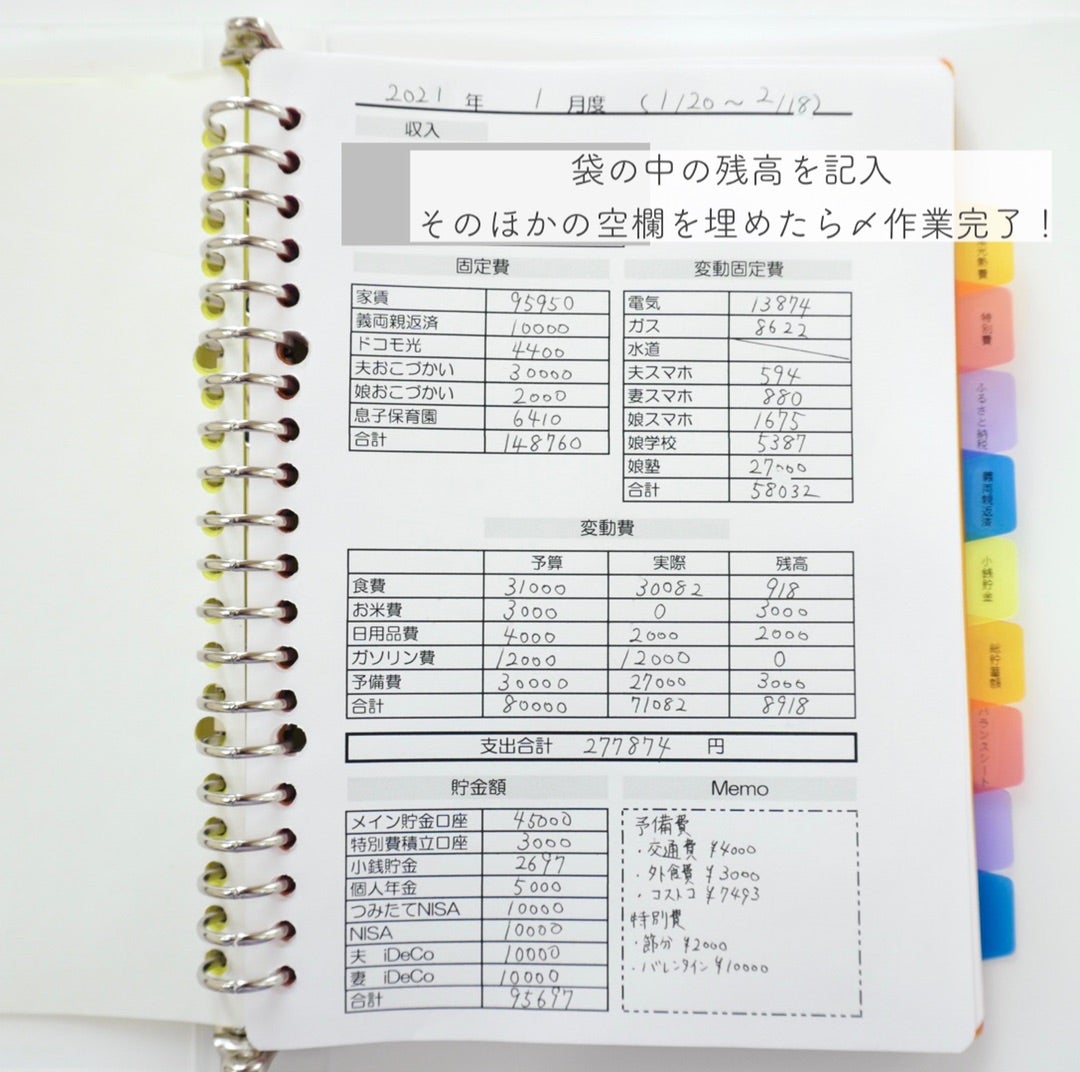 2021 年 1 月度 (1/20～2/18)
収入
袋の中の残高を記入
そのほかの空欄を埋めたら〆作業完了！
固定費
家賃 95950
義両親返済 10000
ドコモ光 4400
夫おこづかい 30000
娘おこづかい 2000
息子保育園 6410
合計 148760
変動固定費
電気 13874
ガス 8622
水道
夫スマホ 594
妻スマホ 880
娘スマホ 1675
娘学校 5387
娘塾 27000
合計 58032
変動費
予算 実際 残高
食費 31000 30082 918
お米費 3000 0 3000
日用品費 4000 2000 2000
ガソリン費 12000 12000 0
予備費 30000 27000 3000
合計 80000 71082 8918
支出合計 277874 円
貯金額
メイン貯金口座 45000
特別費積立口座 3000
小銭貯金 2697
個人年金 5000
つみたてNISA 10000
NISA 10000
夫 iDeCo 10000
妻 iDeCo 10000
合計 95697
Memo
予備費
・交通費 ¥4000
・外食費 ¥3000
・コストコ ¥7493
特別費
・節分 ¥2000
・バレンタイン ¥10000
光熱費
特別費
ふるさと納税
義両親返済
小銭貯金
総貯蓄額
バランスシート